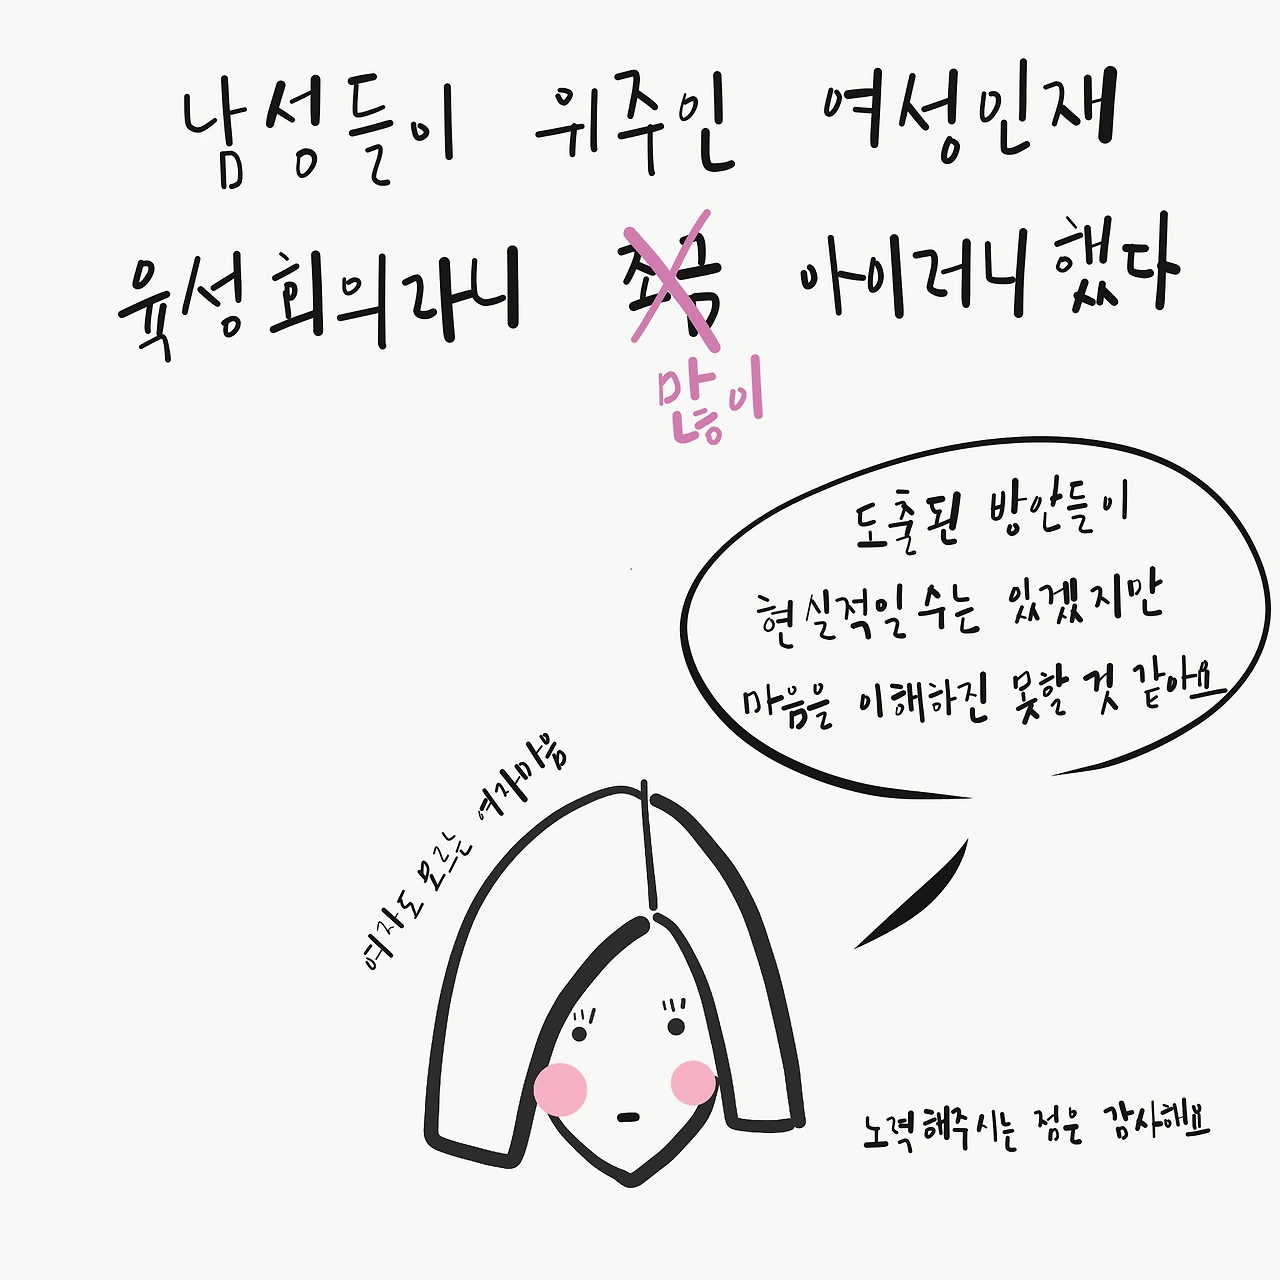 남성들이 위주인 여성인재
육성회의라니 조금 아이러니했다
많이
도출된 방안들이
현실적일 수는 있겠지만
마음을 이해하진 못할 것 같아요
여자도 모르는 여자마음
노력해주시는 점은 감사해요